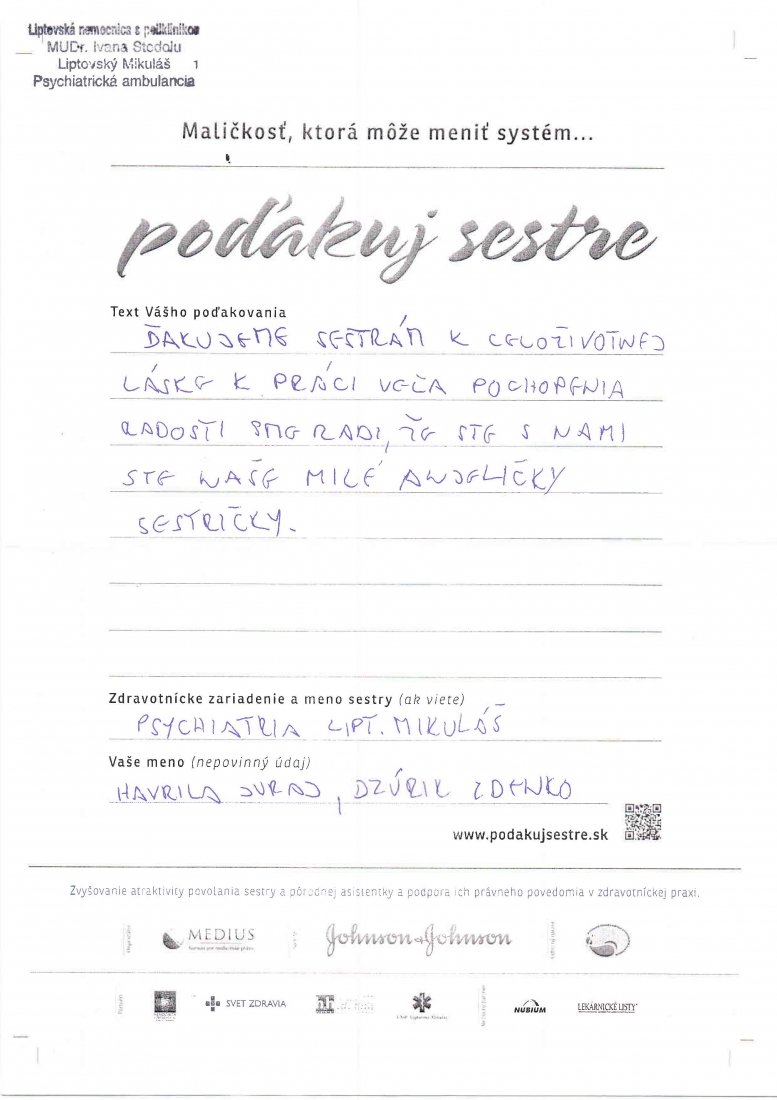 Liptovská nemocnica s poliklinikou
MUDr. Ivana Stodolu
Liptovský Mikuláš 1
Psychiatrická ambulancia
Maličkosť, ktorá môže meniť systém...
poďakuj sestre
Text Vášho poďakovania
ĎAKUJEME SESTRÁM K CELOŽIVOTNEJ
LÁSKE K PRÁCI VEĽA POCHOPENIA
RADOSTI SME RADI, ŽE STE S NAMI
STE NAŠE MILÉ ANJELIČKY
SESTRIČKY.
Zdravotnícke zariadenie a meno sestry (ak viete)
PSYCHIATRIA LIPT. MIKULÁŠ
Vaše meno (nepovinný údaj)
HAVRILA JURAJ, DZÚRIK ZDENKO
www.podakujsestre.sk
Zvyšovanie atraktivity povolania sestry a pôrodnej asistentky a podpora ich právneho povedomia v zdravotníckej praxi.
MEDIUS
Johnson & Johnson
SVET ZDRAVIA
NUBIUM
LEKÁRNICKÉ LISTY